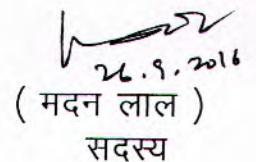 26.9.2016
( मदन लाल )
सदस्य